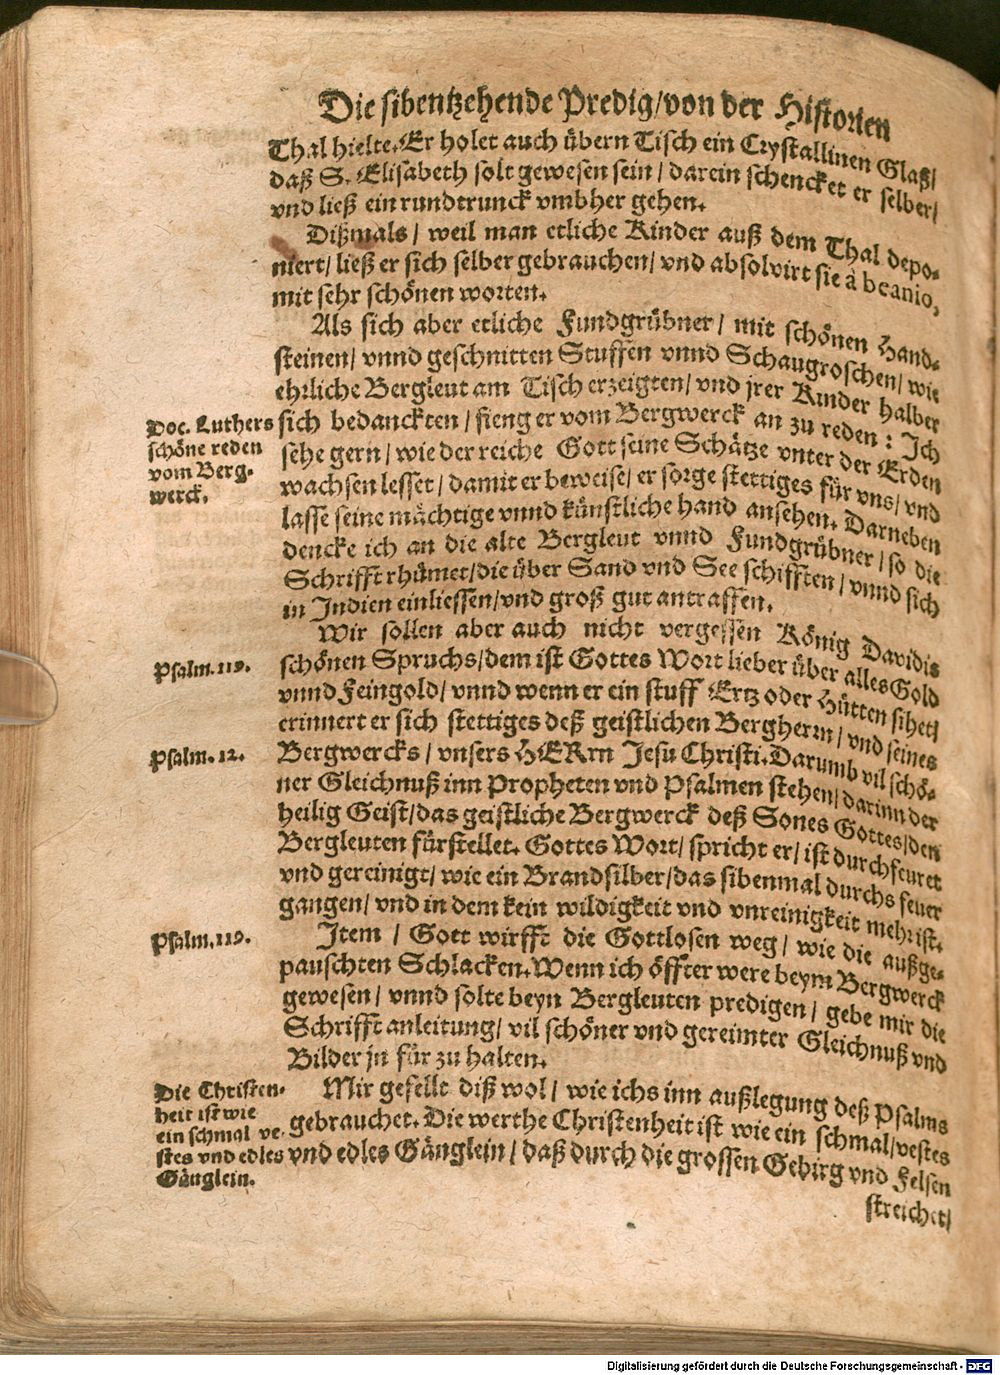 Die sibentzehende Predig/von der Historien
Thal hielte. Er holet auch übern Tisch ein Crystallinen Glaß/
daß S. Elisabeth solt gewesen sein/ darein schencket er selber/
vnd ließ ein rundtrunck vmbher gehen.
Dißmals/ weil man etliche Kinder auß dem Thal depo-
niert/ ließ er sich selber gebrauchen/ vnd absolvirt sie à beanio,
mit sehr schönen worten.
Als sich aber etliche Fundgrübner/ mit schönen Hand-
steinen/ vnnd geschnitten Stuffen vnnd Schaugroschen/ wie
ehrliche Bergleut am Tisch erzeigten/ vnd jrer Kinder halber
sich bedanckten/ fieng er vom Bergwerck an zu reden: Ich
sehe gern/ wie der reiche Gott seine Schätze vnter der Erden
wachsen lesset/ damit er beweise/ er sorge stettiges für vns/ vnd
lasse seine mächtige vnnd künstliche hand ansehen. Darneben
dencke ich an die alte Bergleut vnnd Fundgrübner/ so die
Schrifft rhümet/die über Sand vnd See schifften/ vnnd sich
in Indien einliessen/vnd groß gut antraffen.
Wir sollen aber auch nicht vergessen König Davidis
schönen Spruchs/dem ist Gottes Wort lieber über alles Gold
vnnd Feingold/ vnnd wenn er ein stuff Ertz oder Hütten sihet/
erinnert er sich stettiges deß geistlichen Bergherrn/ vnd seines
Bergwercks/ vnsers HERrn Jesu Christi. Darumb vil schö-
ner Gleichnuß inn Propheten vnd Psalmen stehen/ darinn der
heilig Geist/das geistliche Bergwerck deß Sones Gottes/den
Bergleuten fürstellet. Gottes Wort/ spricht er/ ist durchfeuret
vnd gereinigt/ wie ein Brandsilber/das sibenmal durchs feuer
gangen/ vnd in dem kein wildigkeit vnd vnreinigkeit mehr ist.
Item/ Gott wirfft die Gottlosen weg/ wie die außge-
pauschten Schlacken. Wenn ich öffter were beym Bergwerck
gewesen/ vnnd solte beyn Bergleuten predigen/ gebe mir die
Schrifft anleitung/ vil schöner vnd gereimter Gleichnuß vnd
Bilder jn für zu halten.
Mir gefellt diß wol/ wie ichs inn außlegung deß Psalms
gebrauchet. Die werthe Christenheit ist wie ein schmal/vestes
vnd edles Gänglein/ daß durch die grossen Gebirg vnd Felsen
streichet/
Doc. Luthers
schöne reden
vom Berg-
werck.
Psalm. 119.
Psalm. 12.
Psalm. 119.
Die Christen-
heit ist wie
ein schmal ve-
stes vnd edles
Gänglein.
Digitalisierung gefördert durch die Deutsche Forschungsgemeinschaft - DFG